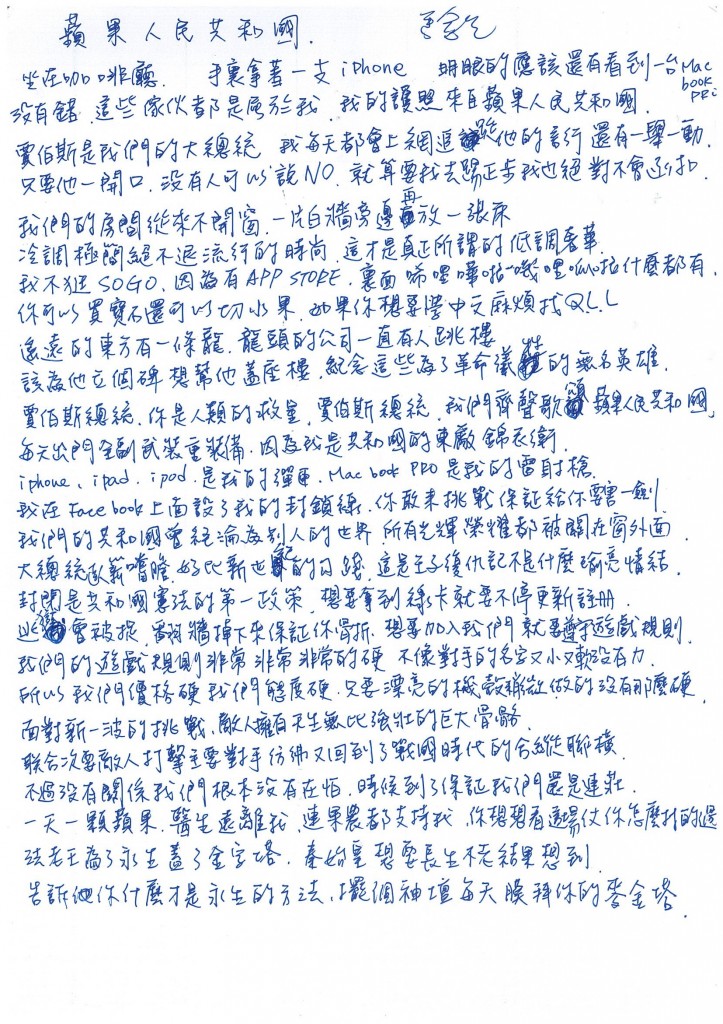 蘋果人民共和國.
坐在咖啡廳. 手裏拿著一支 iPhone 明眼的應該還有看到一台 Mac book PRO
沒有錯 這些傢伙都是屬於我. 我的護照來自蘋果人民共和國.
賈伯斯是我們的大總統 我每天都會上網追蹤他的言行 還有一舉一動.
只要他一開口. 沒有人可以說 NO. 就算要我去踢正步我也絕對不會.
我們的房間從來不開窗. 一片白牆旁邊再放一張床
冷調極簡絕不退流行的時尚 這才是真正所謂的低調奢華.
我不逛 SOGO, 因為有 APP STORE. 裏面唏哩嘩啦嘰哩呱啦什麼都有.
你可以買寶石還可以切水果. 如果你想要學中文麻煩找 Q.L.L
遙遠的東方有一條龍. 龍頭的公司一直有人跳樓
該為他立個碑想幫他蓋座樓. 紀念這些為了革命犧牲的無名英雄.
賈伯斯總統. 你是人類的救星. 賈伯斯總統. 我們齊聲歌頌蘋果人民共和國.
每天出門全副武裝重裝備. 因為我是共和國的東廠錦衣衛.
iphone、ipad. ipod. 是我的彈匣. Mac book PRO 是我的雷射槍.
我在 Facebook 上面設了我的封鎖線. 你敢來挑戰保證給你要害一劍
我們的共和國曾經淪為別人的世界 所有光輝榮耀都被關在窗外面.
大總統臥薪嚐膽. 好比新世紀的勾踐. 這是王子復仇記不是什麼瑜亮情結.
封閉是共和國憲法的第一政策. 想要拿到綠卡就要不停更新註冊.
逃獄會被捉. 翻牆掉下來保證你骨折. 想要加入我們就要遵守遊戲規則.
我們的遊戲規則非常非常非常的硬 不像對手的名字又小又軟沒有力.
所以我們價格硬我們態度硬. 只要漂亮的機殼做的沒有那麼硬.
面對新一波的挑戰. 敵人擁有天生無比強壯的巨大骨骼.
聯合次要敵人打擊主要對手彷彿又回到了戰國時代的合縱聯橫.
不過沒有關係我們根本沒有在怕. 時候到了保證我們還是連莊.
一天一顆蘋果. 醫生遠離我. 連果農都支持我. 你想想看這場仗你怎麼打的過
法老王為了永生蓋了金字塔. 秦始皇想要長生不老結果想到.
告訴你什麼才是永生的方法. 擺個神壇每天膜拜你的麥金塔.